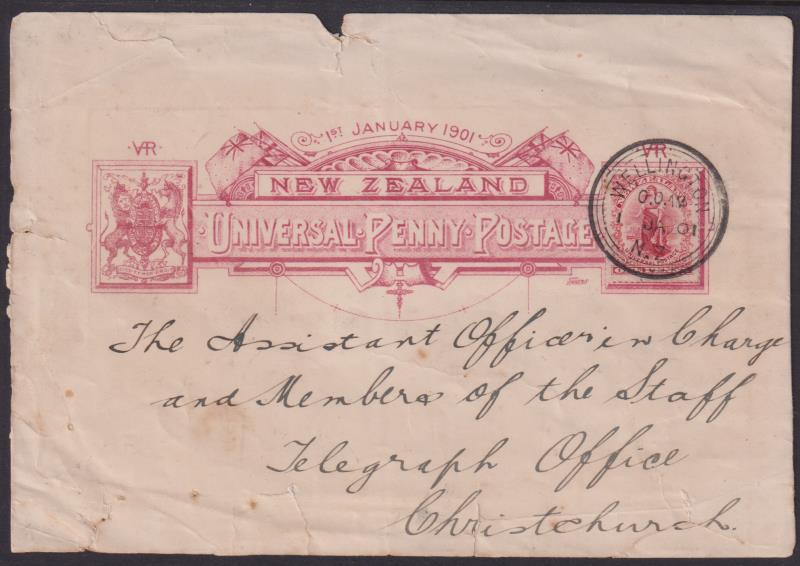 1ST JANUARY 1901
VR
VR
NEW ZEALAND
UNIVERSAL PENNY POSTAGE
WELLINGTON
1 JA 01
N.Z
The Assistant Officer in Charge
and Members of the Staff
Telegraph Office
Christchurch.